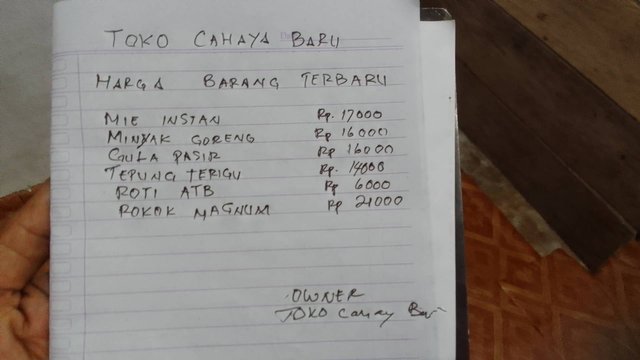 TOKO CAHAYA BARU
HARGA BARANG TERBARU
MIE INSTAN Rp. 17000
MINYAK GORENG Rp 16000
GULA PASIR Rp 16000
TEPUNG TERIGU Rp. 14000
ROTI ATB Rp 6000
ROKOK MAGNUM Rp 21000
OWNER
TOKO Cahay